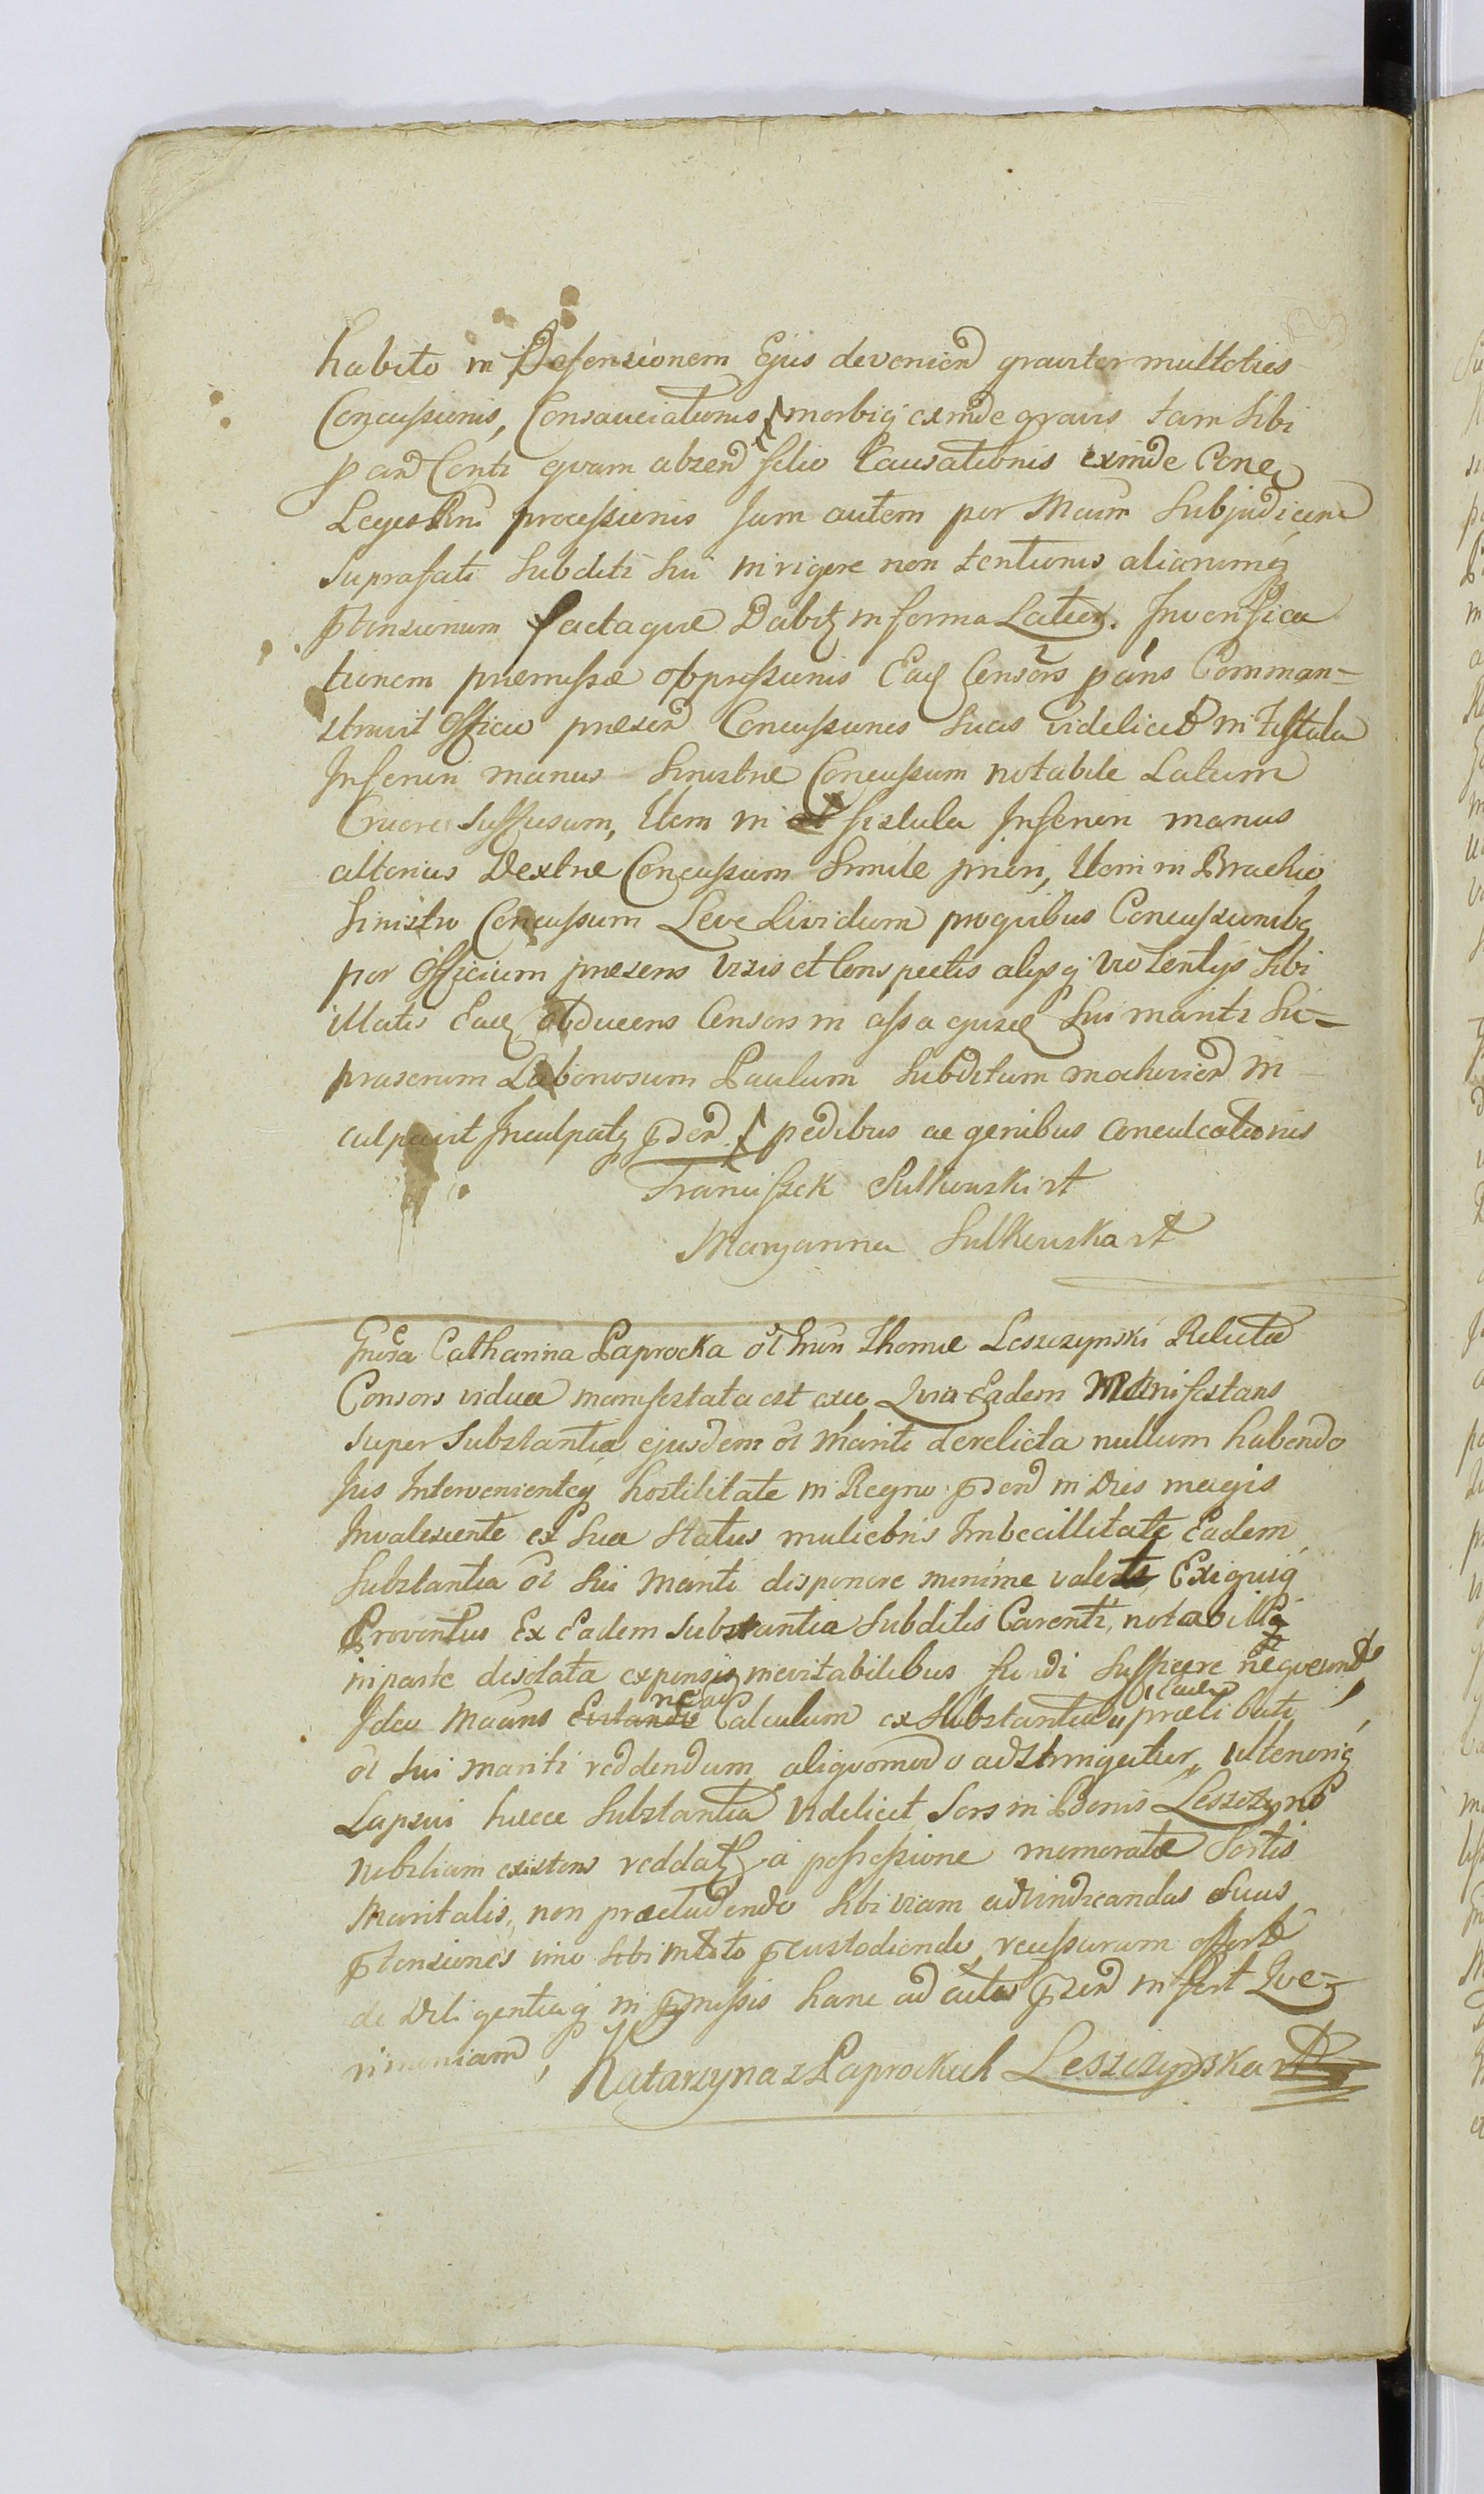 habito in Defensionem Ejus devenien graviter multoties
Concussionis, Consauciationis morbiq exinde gravis tam Sibi
quam absen filio Causationis exinde Cone
Leges Rni processionis Jam autem per Subjudicem
Suprafati Subditi Sui in rigore non tentionis aliarumq
ptensionum factaque Dabitz in forma Latiori. In verifica
tionem præmissæ oppressionis Ead Consors Comman=
stravit Officio præsen Concussiones Suas videlicet in fistula
Inferiori manus Sinistræ Concussum notabile Latum
Cruore Suffusum, Item in fistula Inferiori manus
alterius Dextræ Concussum Simile priori, Item in Brachio
Sinistro Concussum Leve Lividum pro quibus Concussionibq
per Officium præsens visis et Conspectis alysq violentys Sibi
illatis Ead Consors in Sui mariti Su=
prascrium Laboriosum Paulum Subditum in
culpavit Inculpatq pden pedibus ac genibus Conculcationis
Franciszek Sulkowski
Maryanna Sulkowska
Gnosa Catharina Paprocka ol Gnsi Thomæ Leszczynski Relicta
Consors vidua manifestata est Quia Eadem Manifestans
super Substantia ejusdem ol Mariti derelicta nullum habendo
Jus Intervenienteq hostilitate in Regno in Dies magis
Invalescente ex Sua Status muliebris Imbecillitate Eadem
Substantia ol Sui Mariti disponere minime valens, Exiguiq
Proventus Ex Eadem Substantia Subditis Carenti, notabiliq
in parte desolata expensis inevitabilibus fundi Sufficere nequeunt
Ideo Mãans ne ad Calculum ex Substantia Ead prælibati
ol Sui mariti reddendum aliquomodo adstringatur, ulteriorq
Lapsui hæcce Substantia videlicet Sors in Bonis Leszczyno
nobilium existens reddatq a possessione memoratæ Sortis
Maritalis, non præcludendo Sibi viam ad vindicandas Suas
ptensiones imo Sibi in toto pcustodiendo, recussuram offert
de Diligentiaq in pmissis hanc ad acta pzen infert Que=
rimoniam
Katarzyna z Paprockich Leszczynska